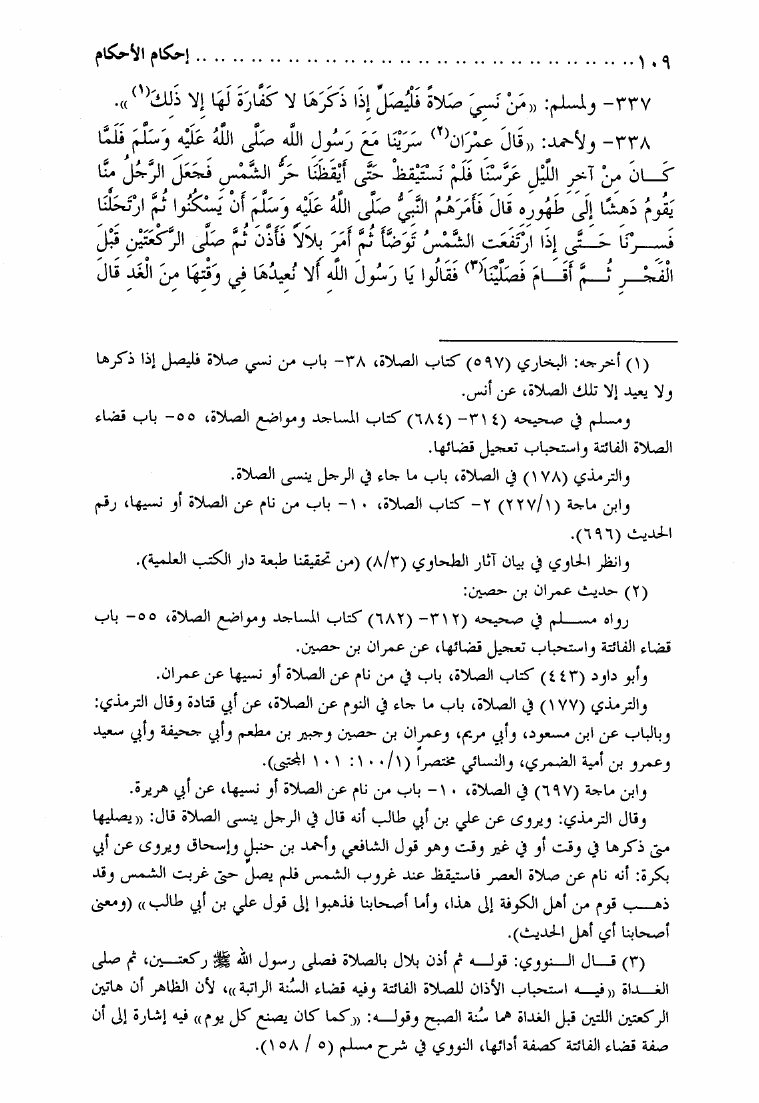 ١٠٩ .................................................. إحكام الأحكام
٣٣٧- ولمسلم: «مَنْ نَسِيَ صَلاَةً فَلْيُصَلِّ إِذَا ذَكَرَهَا لا كَفَّارَةَ لَهَا إِلا ذَلِكَ(١)».
٣٣٨- ولأحمد: «قَالَ عِمْرَان(٢) سَرَيْنَا مَعَ رَسُولِ اللهِ صَلَّى اللهُ عَلَيْهِ وَسَلَّمَ فَلَمَّا
كَـــانَ مِنْ آخِرِ اللَّيْلِ عَرَّسْنَا فَلَمْ نَسْتَيْقِظْ حَتَّى أَيْقَظَنَا حَرُّ الشَّمْسِ فَجَعَلَ الرَّجُلُ مِنَّا
يَقُومُ دَهِشًا إِلَى طَهُورِهِ قَالَ فَأَمَرَهُمُ النَّبِيُّ صَلَّى اللهُ عَلَيْهِ وَسَلَّمَ أَنْ يَسْكُنُوا ثُمَّ ارْتَحَلْنَا
فَســـرْنَا حَـــتَّى إِذَا ارْتَفَعَتِ الشَّمْسُ تَوَضَّأَ ثُمَّ أَمَرَ بِلاَلاً فَأَذَّنَ ثُمَّ صَلَّى الرَّكْعَتَيْنِ قَبْلَ
الْفَجْـــرِ ثُـــمَّ أَقَـــامَ فَصَلَّيْنَا(٣) فَقَالُوا يَا رَسُولَ اللهِ أَلا نُعِيدُهَا فِي وَقْتِهَا مِنَ الْغَدِ قَالَ
(١) أخرجه: البخاري (٥٩٧) كتاب الصلاة، ٣٨- باب من نسي صلاة فليصل إذا ذكرها
ولا يعيد إلا تلك الصلاة، عن أنس.
ومسلم في صحيحه (٣١٤- (٦٨٤) كتاب المساجد ومواضع الصلاة، ٥٥- باب قضاء
الصلاة الفائتة واستحباب تعجيل قضائها.
والترمذي (١٧٨) في الصلاة، باب ما جاء في الرجل ينسى الصلاة.
وابن ماجة (٢٢٧/١) ٢- كتاب الصلاة، ١٠- باب من نام عن الصلاة أو نسيها، رقم
الحديث (٦٩٦).
وانظر الحاوي في بيان آثار الطحاوي (٨/٣) (من تحقيقنا طبعة دار الكتب العلمية).
(٢) حديث عمران بن حصين:
رواه مســـلم في صحيحه (٣١٢- (٦٨٢) كتاب المساجد ومواضع الصلاة، ٥٥- باب
قضاء الفائتة واستحباب تعجيل قضائها، عن عمران بن حصين.
وأبو داود (٤٤٣) كتاب الصلاة، باب في من نام عن الصلاة أو نسيها عن عمران.
والترمذي (١٧٧) في الصلاة، باب ما جاء في النوم عن الصلاة، عن أبي قتادة وقال الترمذي:
وبالباب عن ابن مسعود، وأبي مريم، وعمران بن حصين وجبير بن مطعم وأبي جحيفة وأبي سعيد
وعمرو بن أمية الضمري، والنسائي مختصراً (١٠٠/١: ١٠١ المجتبى).
وابن ماجة (٦٩٧) في الصلاة، ١٠- باب من نام عن الصلاة أو نسيها، عن أبي هريرة.
وقال الترمذي: ويروى عن علي بن أبي طالب أنه قال في الرجل ينسى الصلاة قال: «يصليها
متى ذكرها في وقت أو في غير وقت وهو قول الشافعي وأحمد بن حنبل وإسحاق ويروى عن أبي
بكرة: أنه نام عن صلاة العصر فاستيقظ عند غروب الشمس فلم يصل حتى غربت الشمس وقد
ذهـــب قوم من أهل الكوفة إلى هذا، وأما أصحابنا فذهبوا إلى قول علي بن أبي طالب» (ومعنى
أصحابنا أي أهل الحديث).
(٣) قـــال الـــنووي: قولـــه ثم أذن بلال بالصلاة فصلى رسول الله ﷺ ركعتـــين، ثم صلى
الغـــداة «فيـــه استحباب الأذان للصلاة الفائتة وفيه قضاء السُنة الراتبة»، لأن الظاهر أن هاتين
الركعتين اللتين قبل الغداة هما سُنة الصبح وقولـــه: «كما كان يصنع كل يوم» فيه إشارة إلى أن
صفة قضاء الفائتة كصفة أدائها، النووي في شرح مسلم (٥ / ١٥٨).